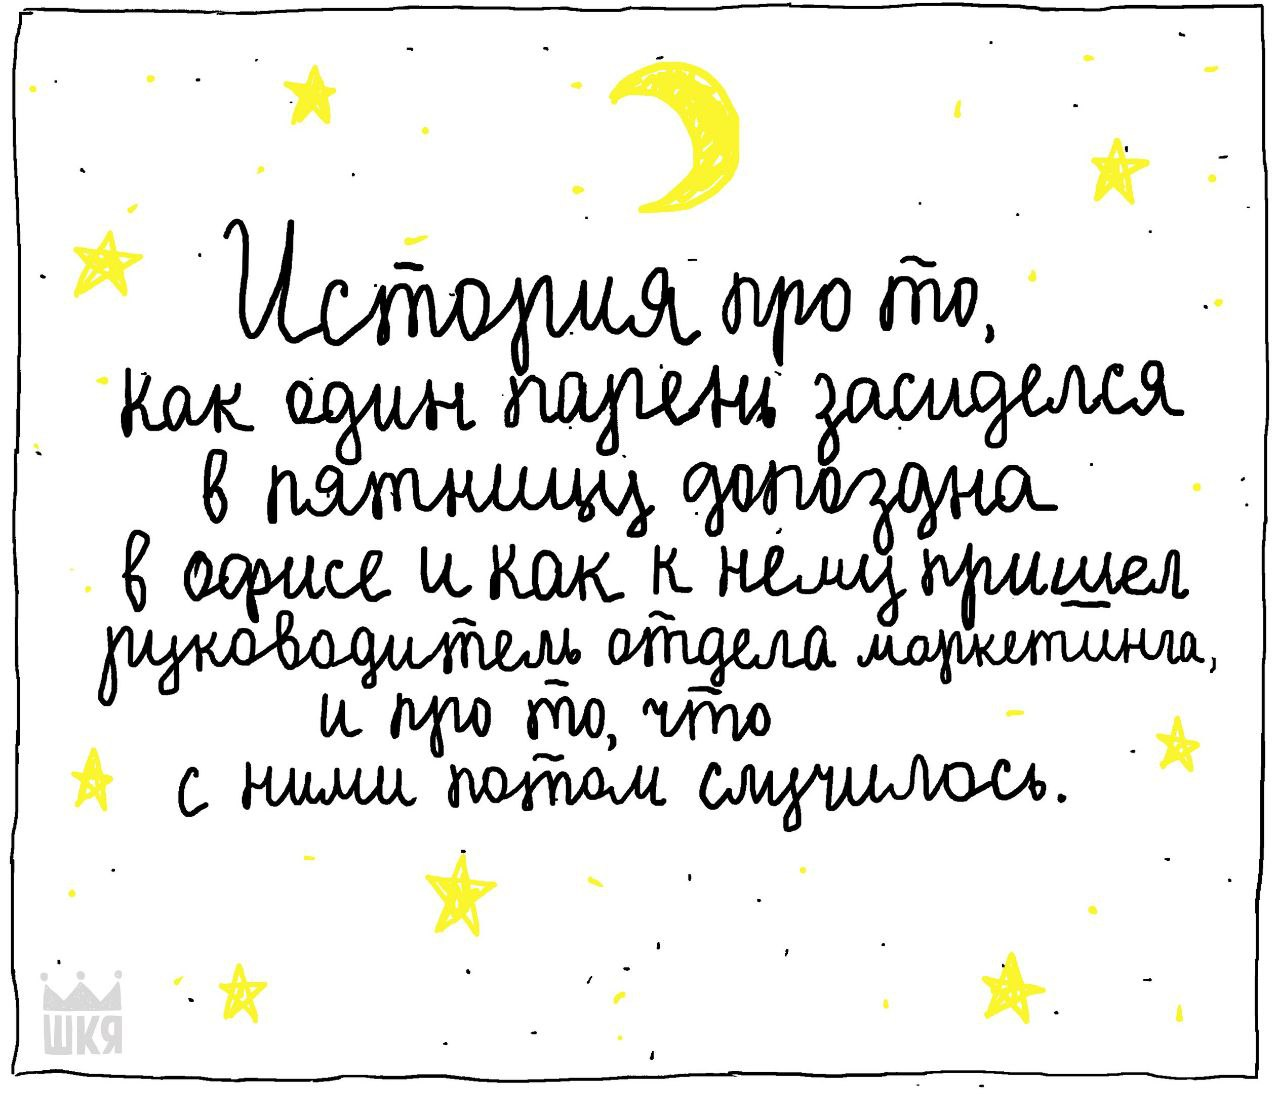 История про то,
как один парень засиделся
в пятницу допоздна
в офисе и как к нему пришел
руководитель отдела маркетинга,
и про то, что
с ними потом случилось.
ШКЯ